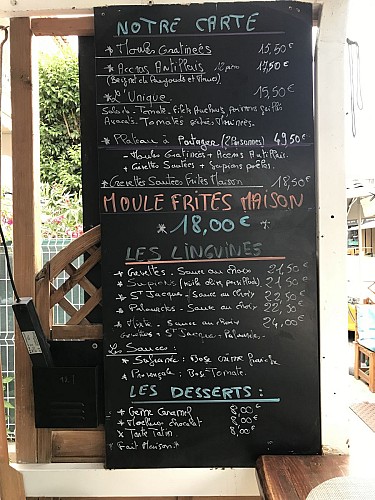 NOTRE CARTE
* Moules Gratinées 15,50€
* Accras Antillais 12 pièces 17,50€
(Beignet de
* L'Unique 19,50€
Salade - Tomate. Filets Anchois, Poivrons grillés
Avocats. Tomates
* Plateau à Partager (2 Personnes) 49,50€
- Moules Gratinées + Accras Antillais.
+ Crevettes Sautées + Supions poêlés.
* Crevettes Sautées Frites Maison 18,50€
MOULE FRITES MAISON
* 18,00€ *
LES LINGUINES
* Crevettes - Sauce au choix 21,50€
* Supions (huile olive persillade) 21,50€
* St Jacques - Sauce au choix 22,50€
* Palourdes - Sauce au choix 22,50€
* Mixte - Sauce au choix 24,00€
St Jacques - Palourdes -
Les Sauces :
* Safranée : Base crème fraîche
* Provençale : Base Tomate.
LES DESSERTS :
* Crème Caramel 8,00€
* Moelleux chocolat 8,00€
* Tarte Tatin 8,00€
Fait Maison *